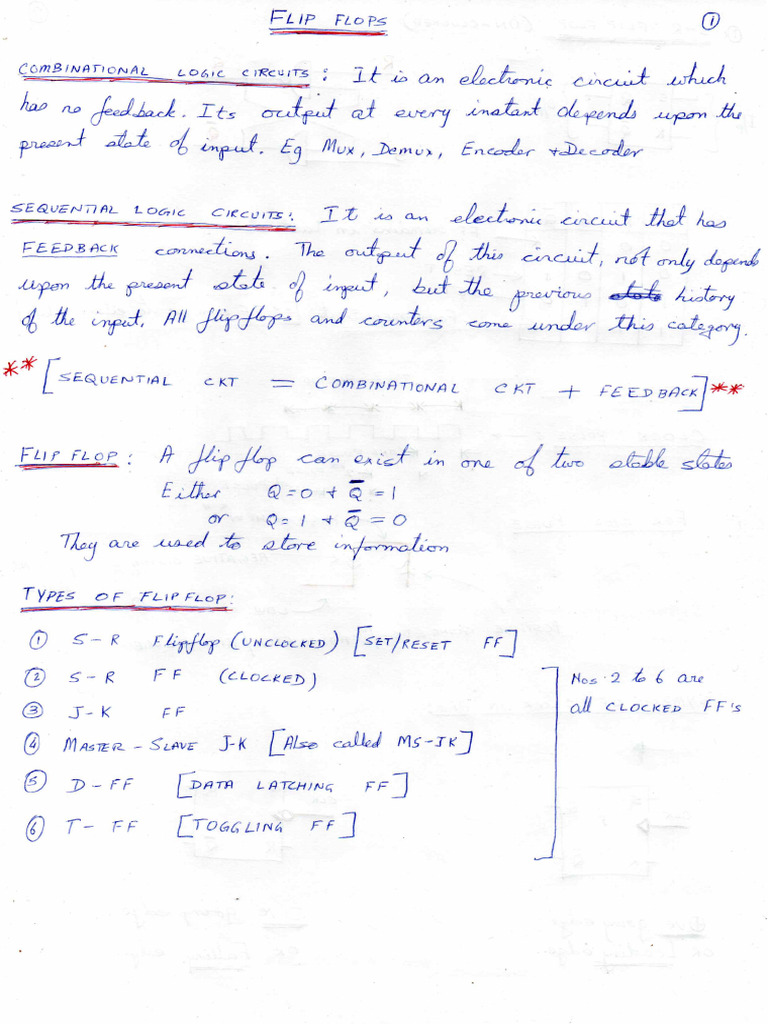 FLIP FLOPS ①
COMBINATIONAL LOGIC CIRCUITS: It is an electronic circuit which
has no feedback. Its output at every instant depends upon the
present state of input. Eg Mux, Demux, Encoder + Decoder
SEQUENTIAL LOGIC CIRCUITS: It is an electronic circuit that has
FEEDBACK connections. The output of this circuit, not only depends
upon the present state of input, but the previous state history
of the input. All flipflops and counters come under this category.
** [SEQUENTIAL CKT = COMBINATIONAL CKT + FEEDBACK] **
FLIP FLOP: A flip flop can exist in one of two stable states
Either Q=0 + Q̅=1
or Q=1 + Q̅=0
They are used to store information
TYPES OF FLIPFLOP:
① S-R Flipflop (UNCLOCKED) [SET/RESET FF]
② S-R FF (CLOCKED)
Nos. 2 to 6 are
③ J-K FF
all CLOCKED FF's
④ MASTER-SLAVE J-K [Also called MS-JK]
⑤ D-FF [DATA LATCHING FF]
⑥ T-FF [TOGGLING FF]